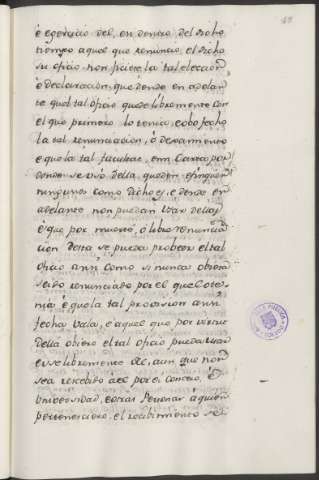 é exercicio del, en dentro del dicho
tiempo aquel que renunció el dicho
su oficio non ficiere la tal eleccion
ó declaracion, que dende en adelan-
te quel tal oficio quede libremente con
el que primero lo tenia, e obo fecho
la tal renunciacion, ó desamiento
e quela tal facultad, e mi Carta por
donde se usó della, queden
ningunos como dicho es, e dende en
adelante non puedan usar dellas
é que por muerte, o libre renuncia-
cion desta se pueda probeer el tal
oficio asi como si nunca obiera
seido renunciado por el que lo te-
nia é quela tal provision asi
fecha vala, e aquel que por virtud
della obiere el tal oficio pueda usar
libremente del, aun que non
sea recebido del por el Concejo, é
Universidad, e otras Personas á quien
pertenenciere el recibimiento